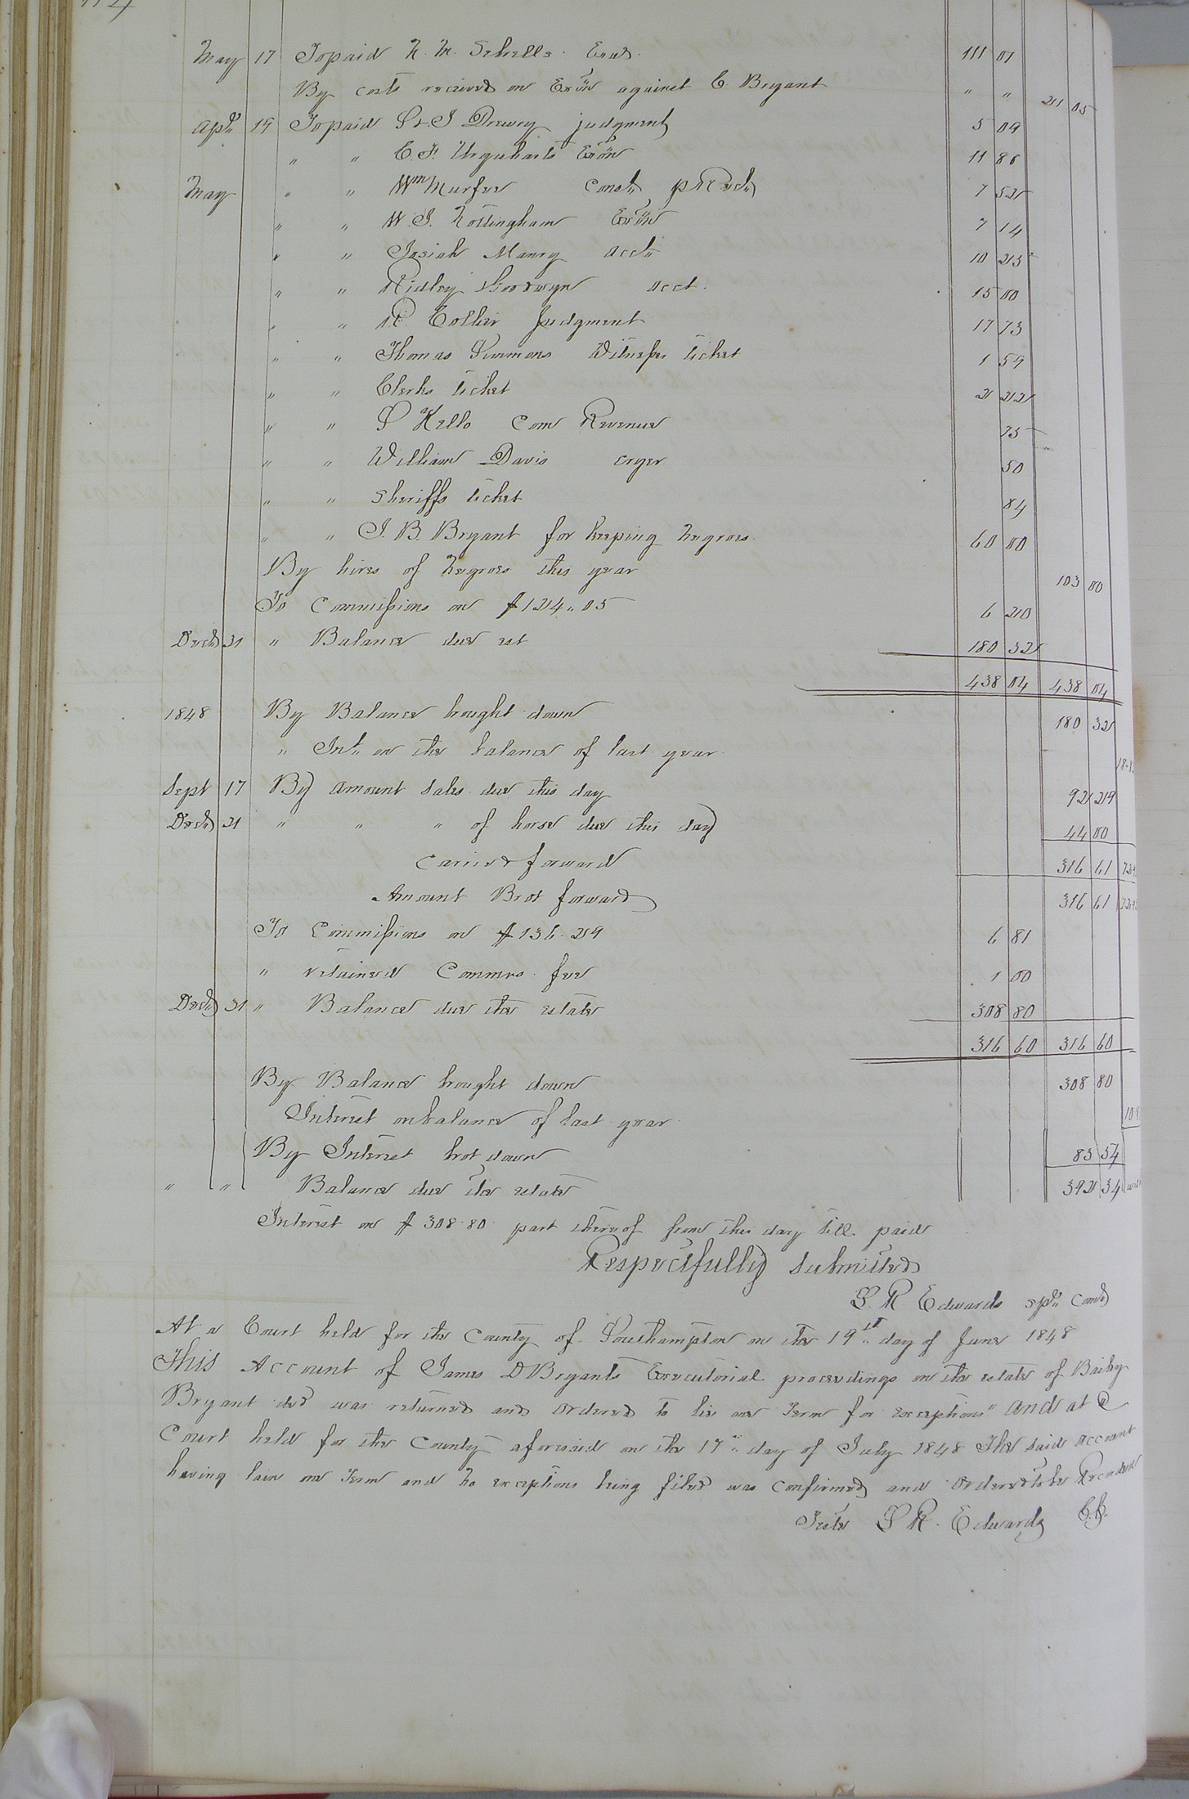 May 17 To paid N. M. Sebrells Exors. 111 01
By costs received on Exon against C. Bryant " " 21 05
Apl 19 To paid S. J Drewry judgment 5 09
" " C. F. Urquharts Exon 11 86
May " " Wm Murfee Const. 7 52
" " W. J. Nottingham Exon 7 14
" " Josiah Manry acct 10 23
" " Ridley acct. 15 00
" " R. Collier Judgment 17 73
" " Thomas Simmons Witness ticket 1 59
" " Clerks ticket 2 22
" " S Kello Com Revenue 75
" " William Davis cryer 50
" " Sheriffs ticket 84
" " J. B. Bryant for keeping negroes 60 00
By hires of Negroes this year 103 00
To Commissions on $124.05 6 20
Decr 31 " Balance due est 180 32
438 04 438 04
1848 By Balance bought down 180 32
" Int. on the balance of last year
Sept 17 By amount Sales due this day 92 29
Decr 21 " " " of horse due this day 44 00
Carried forward 316 61
Amount Brot forward 316 61
To Commissions on $136.29 6 81
" retained Commrs. fee 1 00
Decr 31 " Balance due the estate 308 80
316 60 316 60
By Balance bought down 308 80
Interest on balance of last year
By Interest brot down 83 54
" " Balance due the estate 392 34
Interest on $308.80 part thereof from this day till paid
Respectfully submitted
L. R Edwards spl. Comr
At a Court held for the County of Southampton on the 19th day of June 1848
This Account of James D Bryants Executorial proceedings on the estate of Bailey
Bryant decd was returned and ordered to lie one Term for exceptions" And at a
Court held for the County aforesaid on the 17th day of July 1848 The said Account
having lain one Term and no exceptions being filed was confirmed and ordered to be Recorded
Teste L R. Edwards C.C.